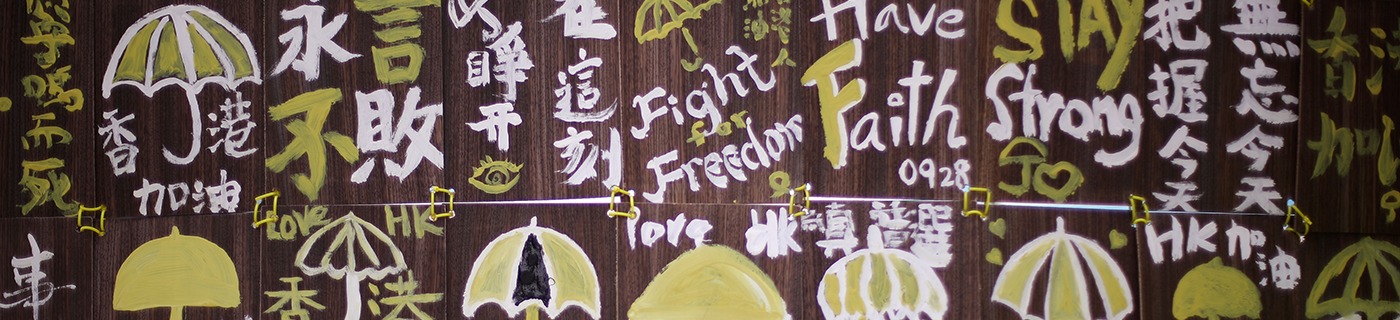 鳴而死
香港
加油
永不
言敗
睜开
在這刻
Fight
for
Freedom
Have
Faith
0928
STAY
Strong
把握今天
無忘今天
香
加
事
Love HK
香港
love HK
真普選
HK 加油